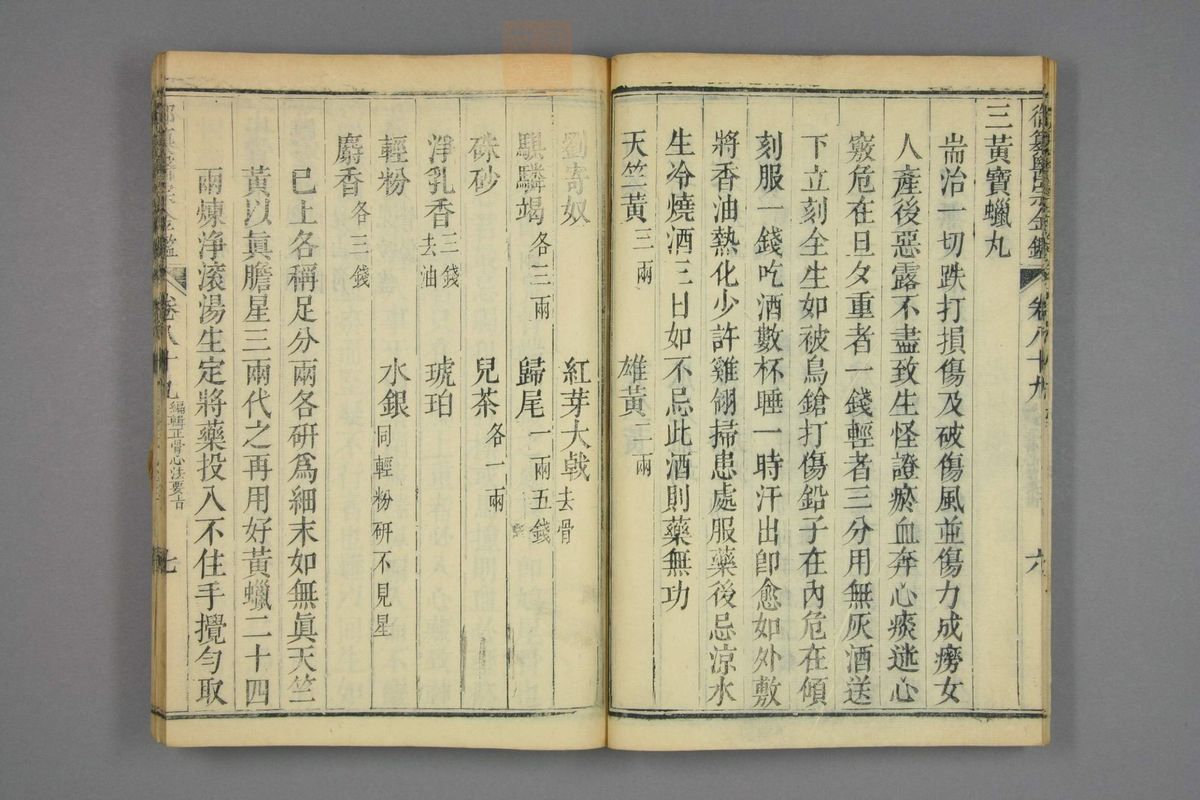 御纂醫宗金鑑
卷八十九
六
三黃寶蠟丸
耑治一切跌打損傷及破傷風並傷力成癆女
人產後惡露不盡致生怪證瘀血奔心痰迷心
竅危在旦夕重者一錢輕者三分用無灰酒送
下立刻全生如被鳥鎗打傷鉛子在內危在傾
刻服一錢吃酒數杯睡一時汗出卽愈如外敷
將香油熱化少許雞翎掃患處服藥後忌涼水
生冷燒酒三日如不忌此酒則藥無功
天竺黃三兩 雄黃二兩
劉寄奴 紅芽大戟去骨
騏驎竭各三兩 歸尾一兩五錢
硃砂 兒茶各一兩
淨乳香三錢去油 琥珀
輕粉 水銀同輕粉研不見星
麝香各三錢
已上各稱足分兩各研爲細末如無眞天竺
黃以眞膽星三兩代之再用好黃蠟二十四
兩煉淨滚湯坐定將藥投入不住手攪勻取
卷八十九
編輯正骨心法要旨
七